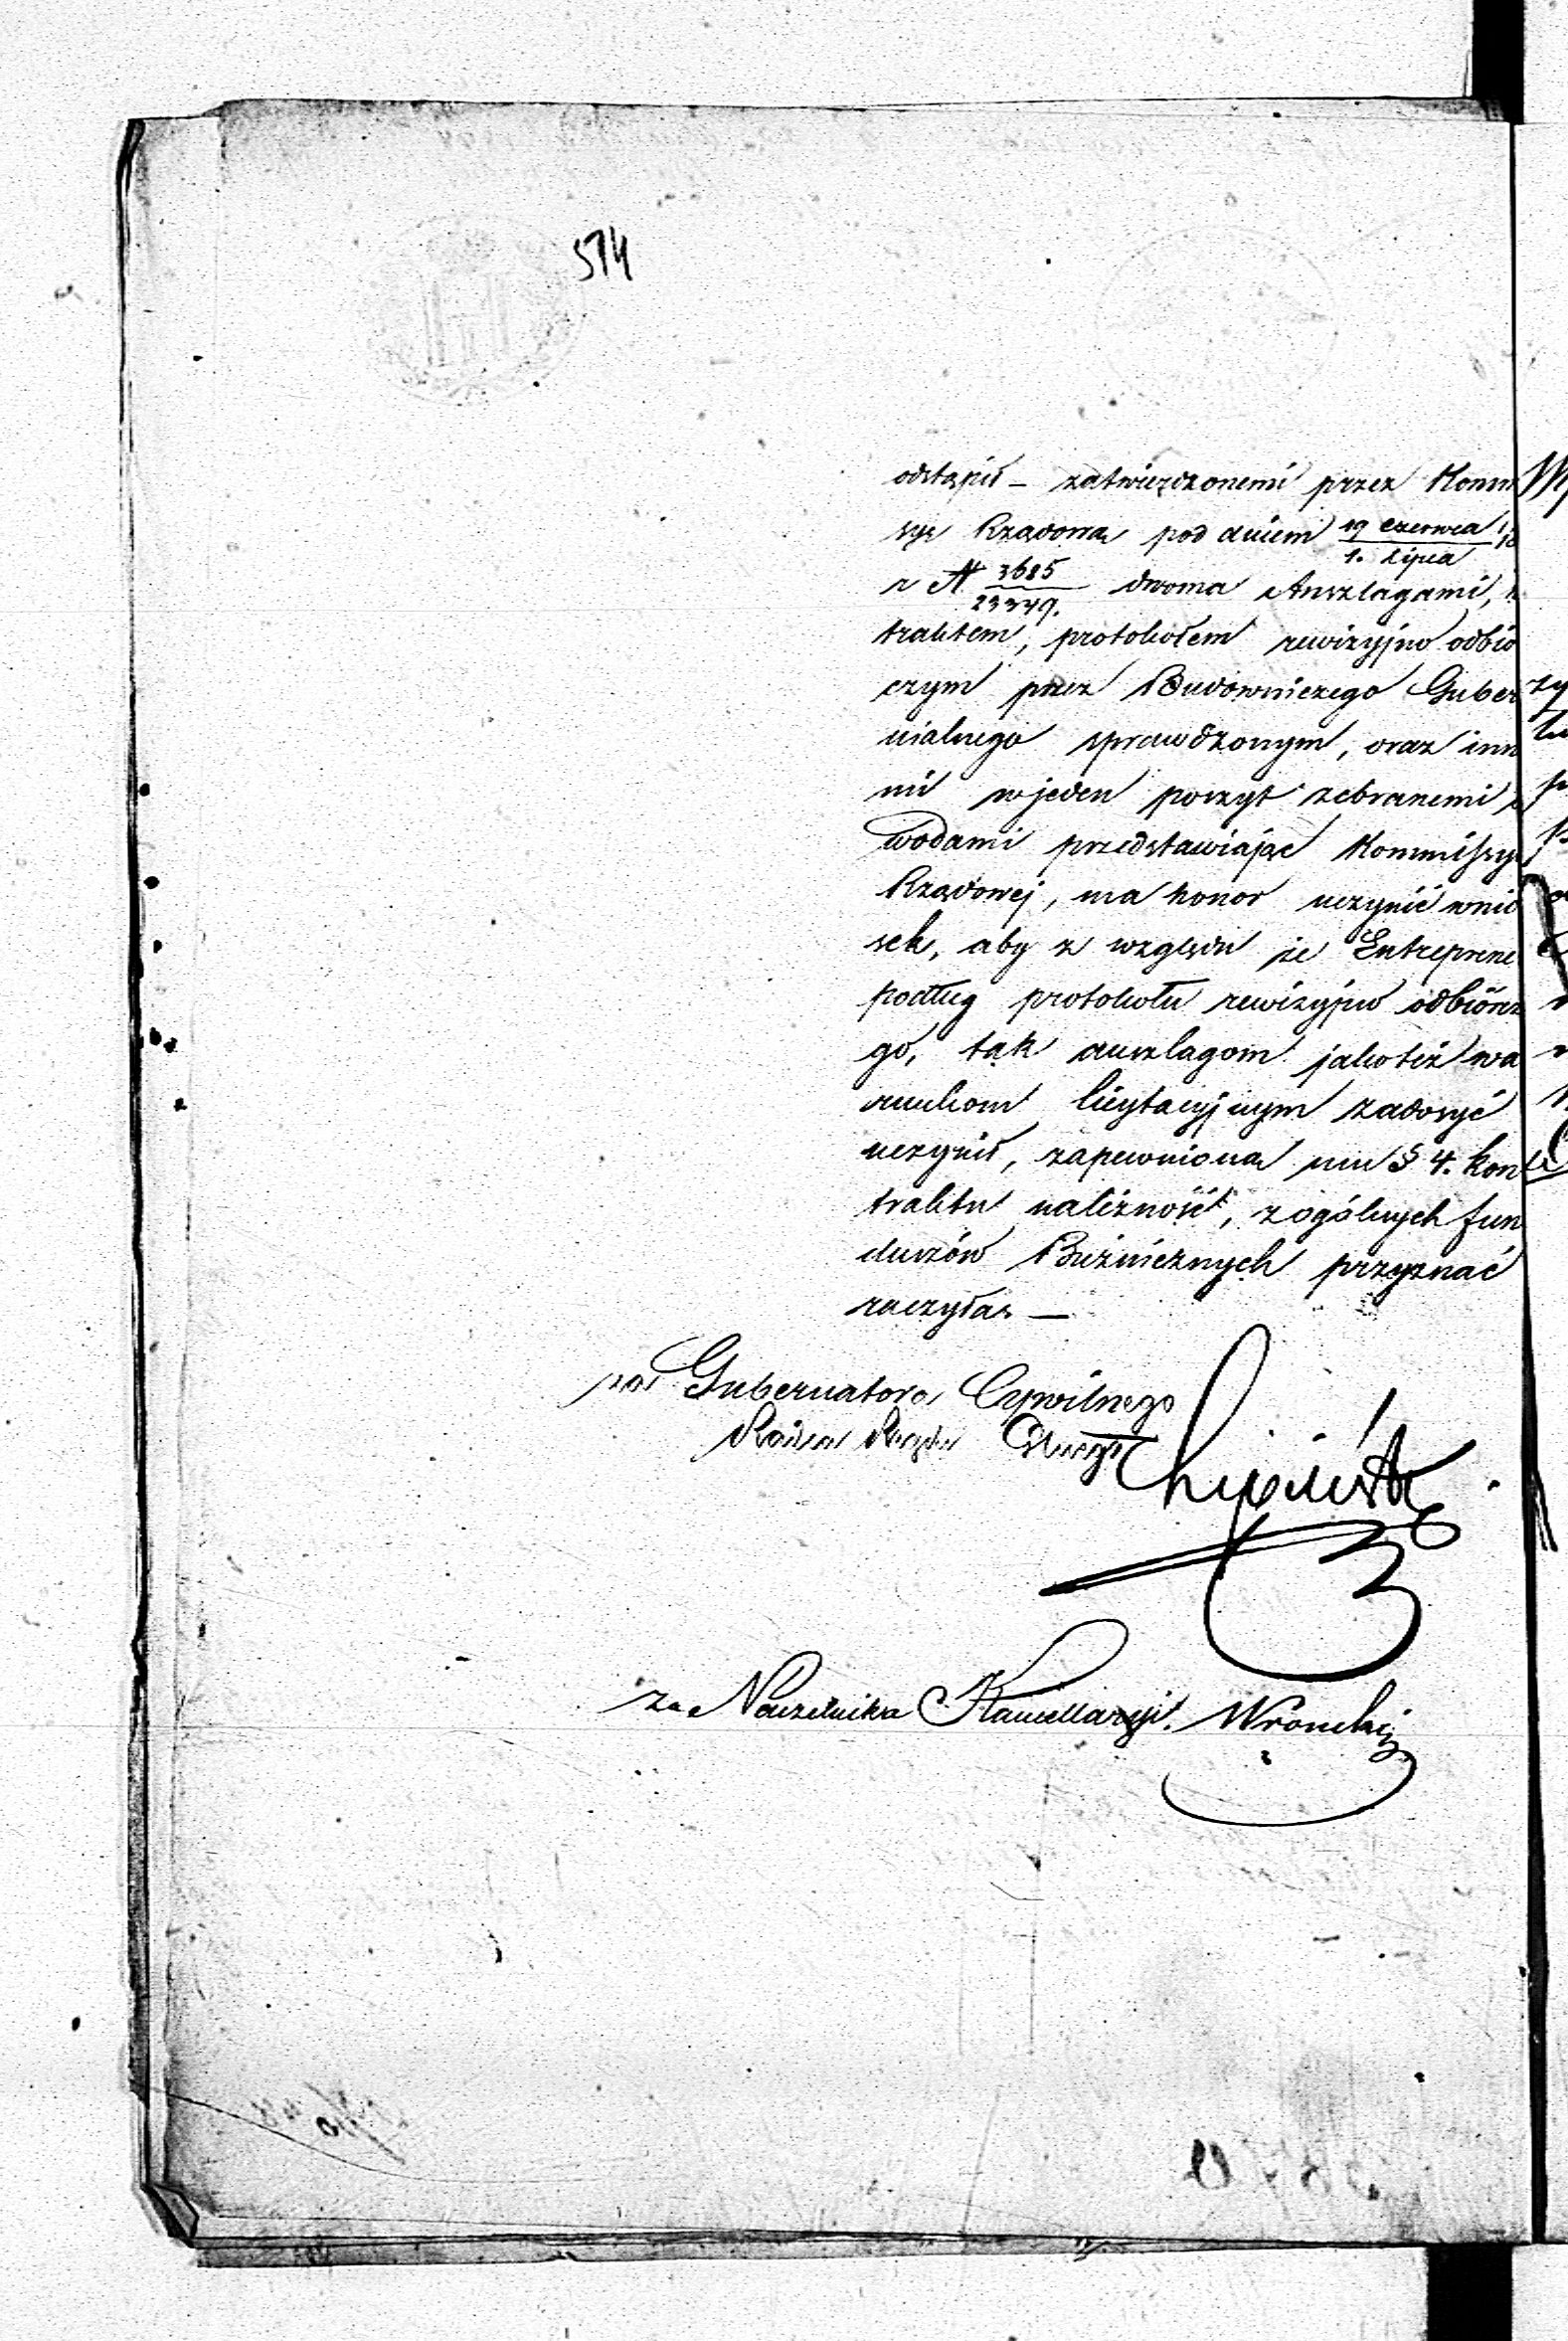 574
odstąpił – zatwierdzonemi przez Komm
syę Rządową pod dniem 19 Czerwca
1. Lipca
z N 3685
23349. dwoma Anszlagami,
traktem, protokołem rewizyjno odbio
czym przez Budowniczego Guber
nialnego sprawdzonym, oraz inn
mi w jeden poszyt zebranemi
wodami przedstawiając Kommissyi
Rządowej, ma honor uczynić wnio
sek, aby z względu że Entreprene
podług protokołu rewizyjno odbiórcz
go, tak anszlagom jakoteż wa
runkom licytacyjnym zadosyć
uczynił, zapewnioną mu § 4. kon
traktu należność, z ogólnych fun
duszów Bużnicznych przyznać
raczyła. —
Gubernatora Cywilnego
Radca
za Naczelnika Kancellaryi. Wronski